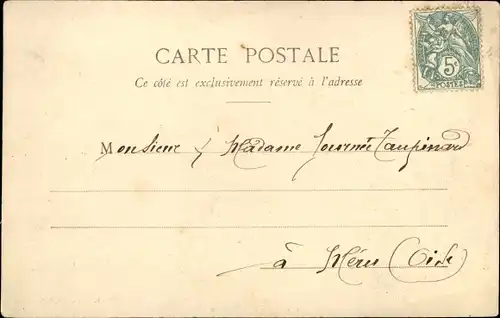 CARTE POSTALE
Ce côté est exclusivement réservé à l'adresse
5c
POSTES
Monsieur & Madame
à Méru (Oise)